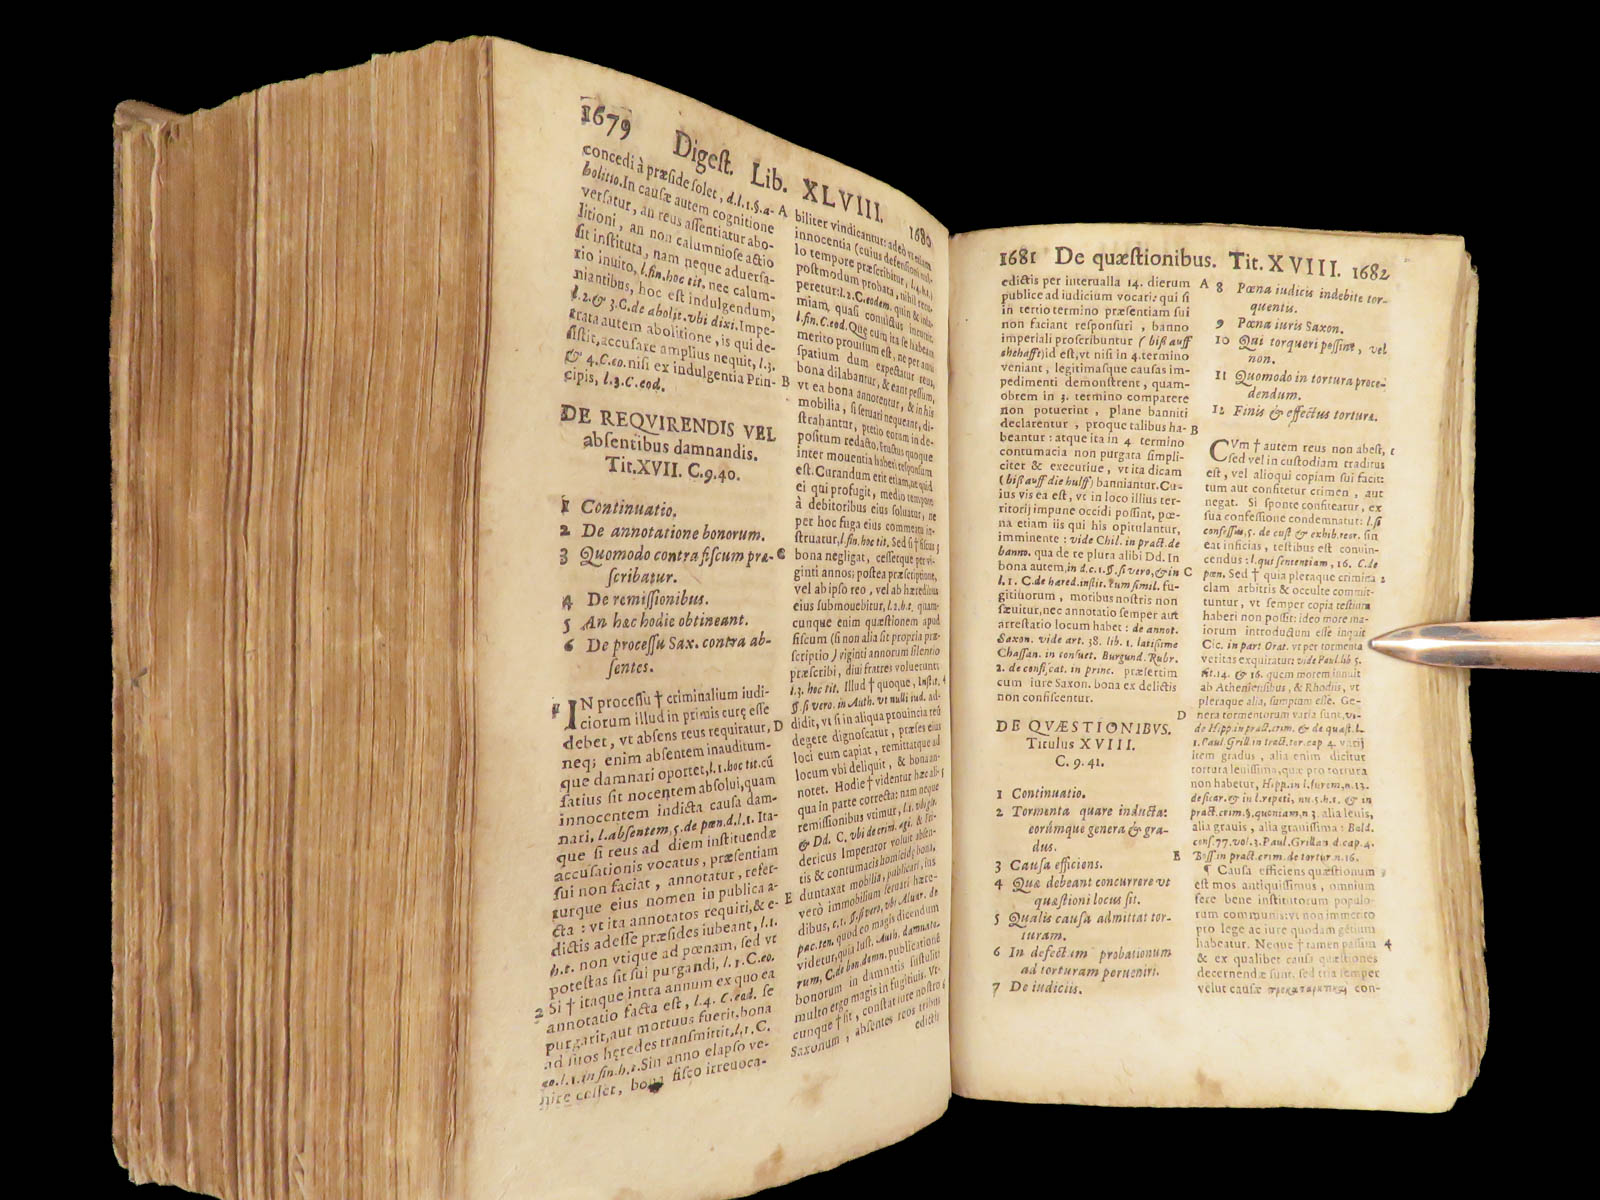 1679 Digeſt. Lib. XLVIII. 1680
concedi à præſide ſolet, d.l.1.§.a-
bolitio. In cauſæ autem cognitione
verſatur, an reus aſſentiatur abo-
litioni, an non calumnioſe actio
ſit inſtituta, nam neque aduerſa-
rio inuito, l.fin.hoc tit. nec calum-
niantibus, hoc eſt indulgendum,
l.2.& 3.C.de abolit. vbi dixi. Impe-
trata autem abolitione, is qui de-
ſiſtit, accuſare amplius nequit, l.3.
& 4.C.eo. niſi ex indulgentia Prin-
cipis, l.3.C.eod.
DE REQVIRENDIS VEL
abſentibus damnandis.
Tit.XVII. C.9.40.
1 Continuatio.
2 De annotatione bonorum.
3 Quomodo contra fiſcum præ-
ſcribatur.
4 De remiſſionibus.
5 An hæc hodie obtineant.
6 De proceſſu Sax. contra ab-
ſentes.
1 IN proceſſu † criminalium iudi-
ciorum illud in primis curę eſſe
debet, vt abſens reus requiratur,
neq; enim abſentem inauditum-
que damnari oportet, l.1.hoc tit. cū
ſatius ſit nocentem abſolui, quam
innocentem indicta cauſa dam-
nari, l.abſentem, 5.de pœn.d.l.1. Ita-
que ſi reus ad diem inſtituendæ
accuſationis vocatus, præſentiam
ſui non faciat, annotatur, refer-
turque eius nomen in publica a-
cta: vt ita annotatos requiri, & e-
dictis adeſſe præſides iubeant, l.1.
h.t. non vtique ad pœnam, ſed vt
poteſtas ſit ſui purgandi, l.1.C.eo.
2 Si † itaque intra annum ex quo ea
annotatio facta eſt, l.4. C.eod. ſe
purgarit, aut mortuus fuerit, bona
ad ſuos hęredes transmittit, l.1.C.
eo.l.1.in fin.h.t. Sin anno elapſo ve-
nire ceſſet, bona fiſco irreuoca-
A
B
C
D
E
biliter vindicantur: adeò vt etiam
innocentia (cuius defenſioni
lo tempore præſcribitur, l.4.h.t.)
poſtmodum probata, nihil
peretur: l.2.C.eodem. quin &
miam, quaſi conuictus incurrit,
l.fin.C.eod. Que cum ita ſe habeant
merito prouiſum eſt, ne per anni
ſpatium dum expectatur reus,
bona dilabantur, & eant peſſum,
vt ea bona annotentur, & in his
mobilia, ſi ſeruari nequeant, di-
ſtrahantur, pretio eorum in de-
poſitum redacto, fructus quoque
inter mouentia haberi reſponſum
eſt. Curandum erit etiam, ne quid
ei qui profugit, medio tempore
à debitoribus eius ſoluatur, ne
per hoc fuga eius commeatu in-
ſtruatur, l.fin.hoc tit. Sed ſi † fiſcus 3
bona negligat, ceſſetque per vi-
ginti annos; poſtea præſcriptione,
vel ab ipſo reo, vel ab hæredibus
eius ſubmouebitur, l.2.h.t. quam-
cunque enim quæſtionem apud
fiſcum (ſi non alia ſit propria præ-
ſcriptio) viginti annorum ſilentio
præſcribi, diui fratres voluerunt
l.3. hoc tit. Illud † quoque, 4
§. ſi vero. in Auth. vt nulli iud. ad-
didit, vt ſi in aliqua prouincia reū
degere dignoſcatur, præſes eius
loci eum capiat, remittatque ad
locum vbi deliquit, & bona an-
notet. Hodie † videntur hæc ali- 5
qua in parte correcta: nam neque
remiſſionibus vtimur,
& Dd. C. vbi de crim. agi. & Fri-
dericus Imperator voluit abſen-
tis & contumacis homicidę bona,
duntaxat mobilia, publicari, ius
verò immobilium ſeruari hære-
dibus,
pac.ten. quod eo magis dicendum
videtur, quia Iuſt. Auth.
rum, C.de bon.damn. publicationē
bonorum in damnatis ſuſtulit:
multo ergo magis in fugitiuis. Vt-
cunque † ſit, conſtat iure noſtro 6
Saxonum, abſentes reos tribus
edictis
1681 De quæſtionibus. Tit. XVIII. 1682
edictis per interualla 14. dierum
publice ad iudicium vocari: qui ſi
in tertio termino præſentiam ſui
non faciant reſponſuri, banno
imperiali proſcribuntur (biß auff
ehehafft) id eſt, vt niſi in 4. termino
veniant, legitimaſque cauſas im-
pedimenti demonſtrent, quam-
obrem in 3. termino comparere
non potuerint, plane banniti
declarentur, proque talibus ha-
beantur: atque ita in 4 termino
contumacia non purgata ſimpli-
citer & executiue, vt ita dicam
(biß auff die hulff) banniantur. Cu-
ius vis ea eſt, vt in loco illius ter-
ritorij impune occidi poſſint, pœ-
na etiam iis qui his opitulantur,
imminente: vide Chil. in pract. de
banno. qua de re plura alibi Dd. In
bona autem, in d.c.1.§.ſi vero, & in
l.1. C.de hæred.inſtit. tum ſimil. fu-
gitiuorum, moribus noſtris non
ſæuitur, nec annotatio ſemper aut
arreſtatio locum habet: de annot.
Saxon. vide art. 38. lib. 1. latiſſime
Chaſſan. in conſuet. Burgund. Rubr.
2. de confiſcat. in princ. præſertim
cum iure Saxon. bona ex delictis
non confiſcentur.
DE QVÆSTIONIBVS.
Titulus XVIII.
C. 9. 41.
1 Continuatio.
2 Tormenta quare inducta:
eorúmque genera & gra-
dus.
3 Cauſa efficiens.
4 Quæ debeant concurrere vt
quæſtioni locus ſit.
5 Qualis cauſa admittat tor-
turam.
6 In defectum probationum
ad torturam perueniri.
7 De iudiciis.
A
B
C
D
E
8 Pœna iudicis indebite tor-
quentis.
9 Pœna iuris Saxon.
10 Qui torqueri poſſint, vel
non.
11 Quomodo in tortura proce-
dendum.
12 Finis & effectus torturæ.
CVm † autem reus non abeſt, 1
ſed vel in cuſtodiam traditus
eſt, vel alioqui copiam ſui facit:
tum aut confitetur crimen, aut
negat. Si ſponte confiteatur, ex
ſua confeſſione condemnatur: l.ſi
confeſſus, 5. de cuſt & exhib.reor. ſin
eat inficias, teſtibus eſt conuin-
cendus: l.qui ſententiam, 16. C.de
pœn. Sed † quia pleraque crimina 2
clam arbitris & occulte commit-
tuntur, vt ſemper copia teſtium
haberi non poſſit: ideo more ma-
iorum introductum eſſe inquit
Cic. in part Orat. vt per tormenta
veritas exquiratur: vide Paul.lib 5.
tit.14. & 16. quem morem innuit
ab Athenienſibus, & Rhodiis, vt
pleraque alia, ſumptum eſſe. Ge-
nera tormentorum varia ſunt, vi-
de Hipp.in pract.crim. & de quæſt.l.
1. Paul.Grill in tract.tor.cap 4. varij
item gradus, alia enim dicitur
tortura leuiſſima, quæ pro tortura
non habetur, Hipp.in l.furem, n.13.
de ſicar. & in l.repeti, nu.5.h.t. & in
pract.crim.§.quoniam, n 3. alia leuis,
alia grauis, alia grauiſſima: Bald.
conſ.77.vol.3. Paul.Grillan d.cap.4.
Boſſ in pract.crim.de tortur.n.16.
¶ Cauſa efficiens quæſtionum 3
eſt mos antiquiſſimus, omnium
fere bene inſtitutorum populo-
rum communis: vt non immerito
pro lege ac iure quodam gētium
habeatur. Neque † tamen paſſim 4
& ex qualibet cauſa quæſtiones
decernendæ ſunt, ſed tria ſemper
velut cauſæ con-